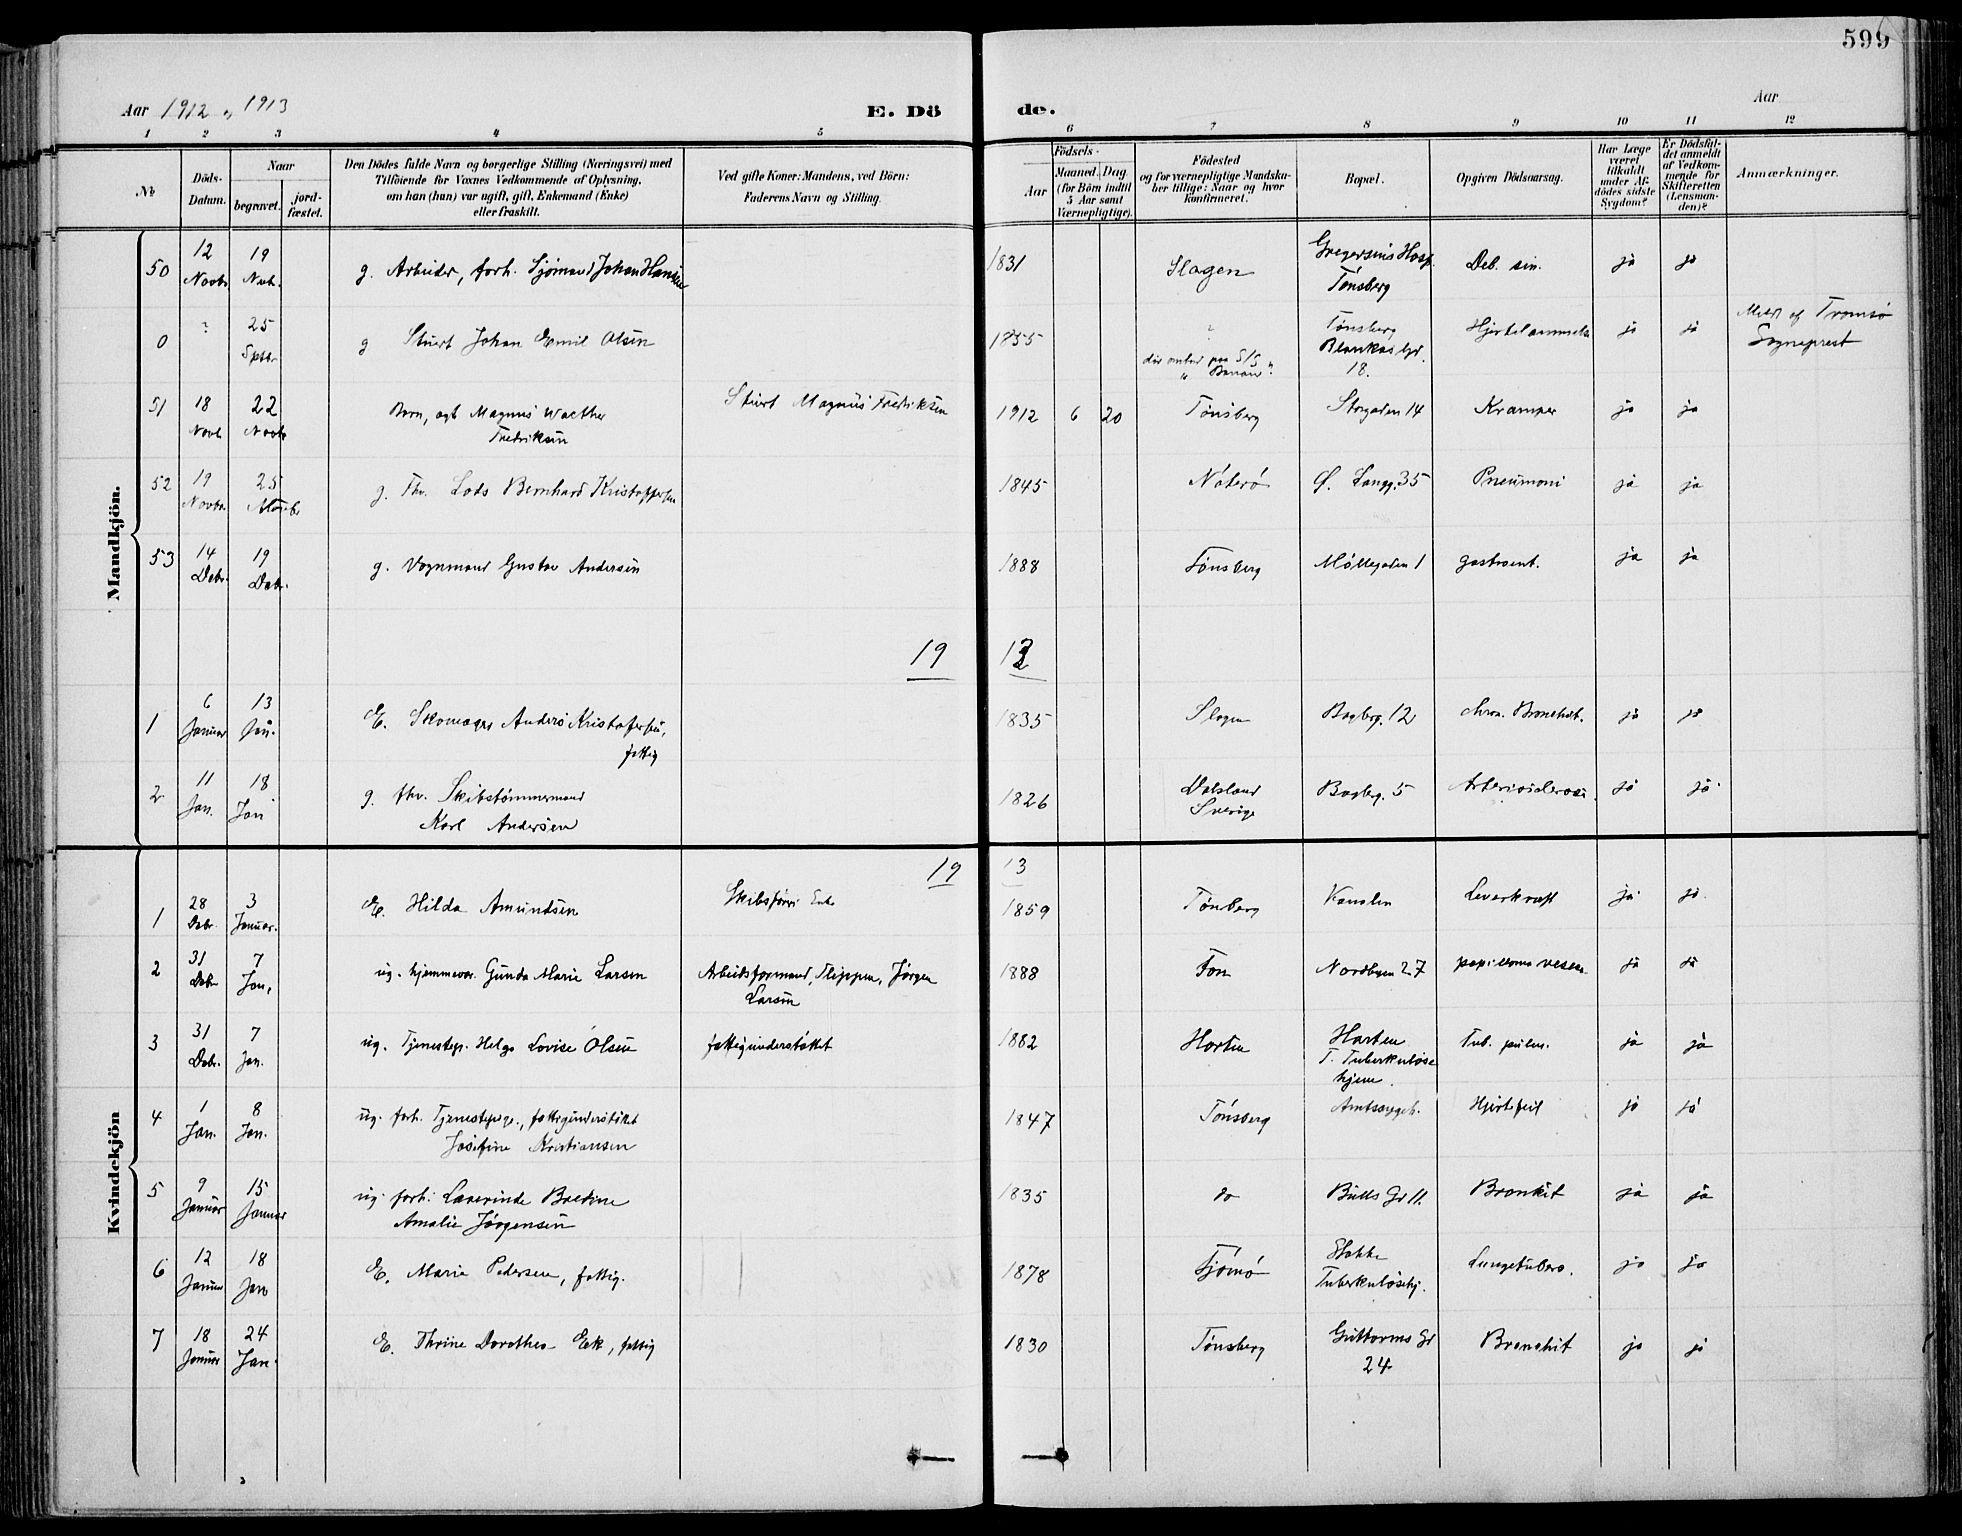 599
Aar 1912 & 1913 E. Dö de. Aar
1 2 3 4 5 6 7 8 9 10 11 12
№ Döds-Datum. Naar begravet. jord-fæstet. Den Dödes fulde Navn og borgerlige Stilling (Næringsvei) med Tilföiende for Voxnes Vedkommende af Oplysning, om han (hun) var ugift, gift, Enkemand (Enke) eller fraskilt. Ved gifte Koner: Mandens, ved Börn: Faderens Navn og Stilling. Födsels- Aar Maaned. Dag (for Börn indtil 5 Aar samt Værnepligtige). Födested og for værnepligtige Mandskaber tillige: Naar og hvor konfirmeret. Bopæl. Opgiven Dödsaarsag. Har Læge været tilkaldt under Afdödes sidste Sygdom? Er Dödsfaldet anmeldt af Vedkommende for Skifteretten (Lensmanden)? Anmærkninger.
Mandkjön.
50 12 Novbr 19 Nvb. g. Arbeider, forh. Sjömand Johan Hansen 1831 Slagen Gregersens Hosp. Tønsberg Deb. sen. ja ja
0 ? 25 Sptr. g Stuert Johan Emil Olsen 1855 ? død ombord paa S/S Tønsberg Blankas Gd. 18. Hjertelammelse ja ja Meldt af Tromsø Sogneprest
51 18 Novb 22 Novb Barn, agt Magnus Walther Fredriksen Stuert Magnus Fredriksen 1912 6 20 Tønsberg Storgaden 14 Kramper ja ja
52 19 Novbr 25 Novbr g. Fhv. Lods Bernhard Kristoffersen 1845 Nøterø Ø. Langg. 35 Pneumoni ja ja
53 14 Debr. 19 Debr. g. Vognmand Gustav Andersen 1888 Tønsberg Møllegaden 1 gastroent. ja ja
19 13
1 6 Januar 13 Jan. E. Skomager Anders Kristofersen, fattig 1835 Slagen Bagberg. 12 chron. Bronchit. ja ja
2 11 Jan. 18 Jan g. fhv. Skibstømmermand Karl Andersen 1826 Dalsland Sverige Bagberg. 5 Arteriosclerose. ja ja
Kvindekjön
19 13
1 28 Debr. 3 Januar. E. Hilda Amundsen Skibsfører Enke 1859 Tønsberg Kanalen Leverkræft ja ja
2 31 Debr 7 Jan. ug. hjemmevær. Gunda Marie Larsen Arbeidsformand, Fleppen, Jørgen Larsen 1888 Fon Nordbyen 27 papilloma vesicæ ja ja
3 31 Debr. 7 Jan. ug. Tjenestep. Helga Lovise Olsen fattigunderstøttet 1882 Horten Horten T. Tuberkuløse hjem. Tub. pulm. ja ja
4 1 Jan. 8 Jan. ug. forh. Tjenestepige, fattigunderstøttet Josefine Kristiansen 1847 Tønsberg Amtssygeh. Hjertefeil ja ja
5 9 Januar 15 Januar ug. forh. Lærerinde Bredine Amalie Jørgensen 1835 do Bulls Gd 11. Bronkit ja ja
6 12 Januar 18 Jan E. Marie Pedersen, fattig. 1878 Tjømø Stokke Tuberkuløsehj. Lungetuberc. ja ja
7 18 Januar 24 Jan. E. Thrine Dorothea Eek, fattig 1830 Tønsberg Guttorms Gd 24 Bronchit ja ja